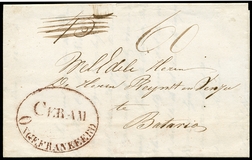 15 60
Wel Edele Heer
De Heere
te
Batavia
CERAM
ONGEFRANKEERD